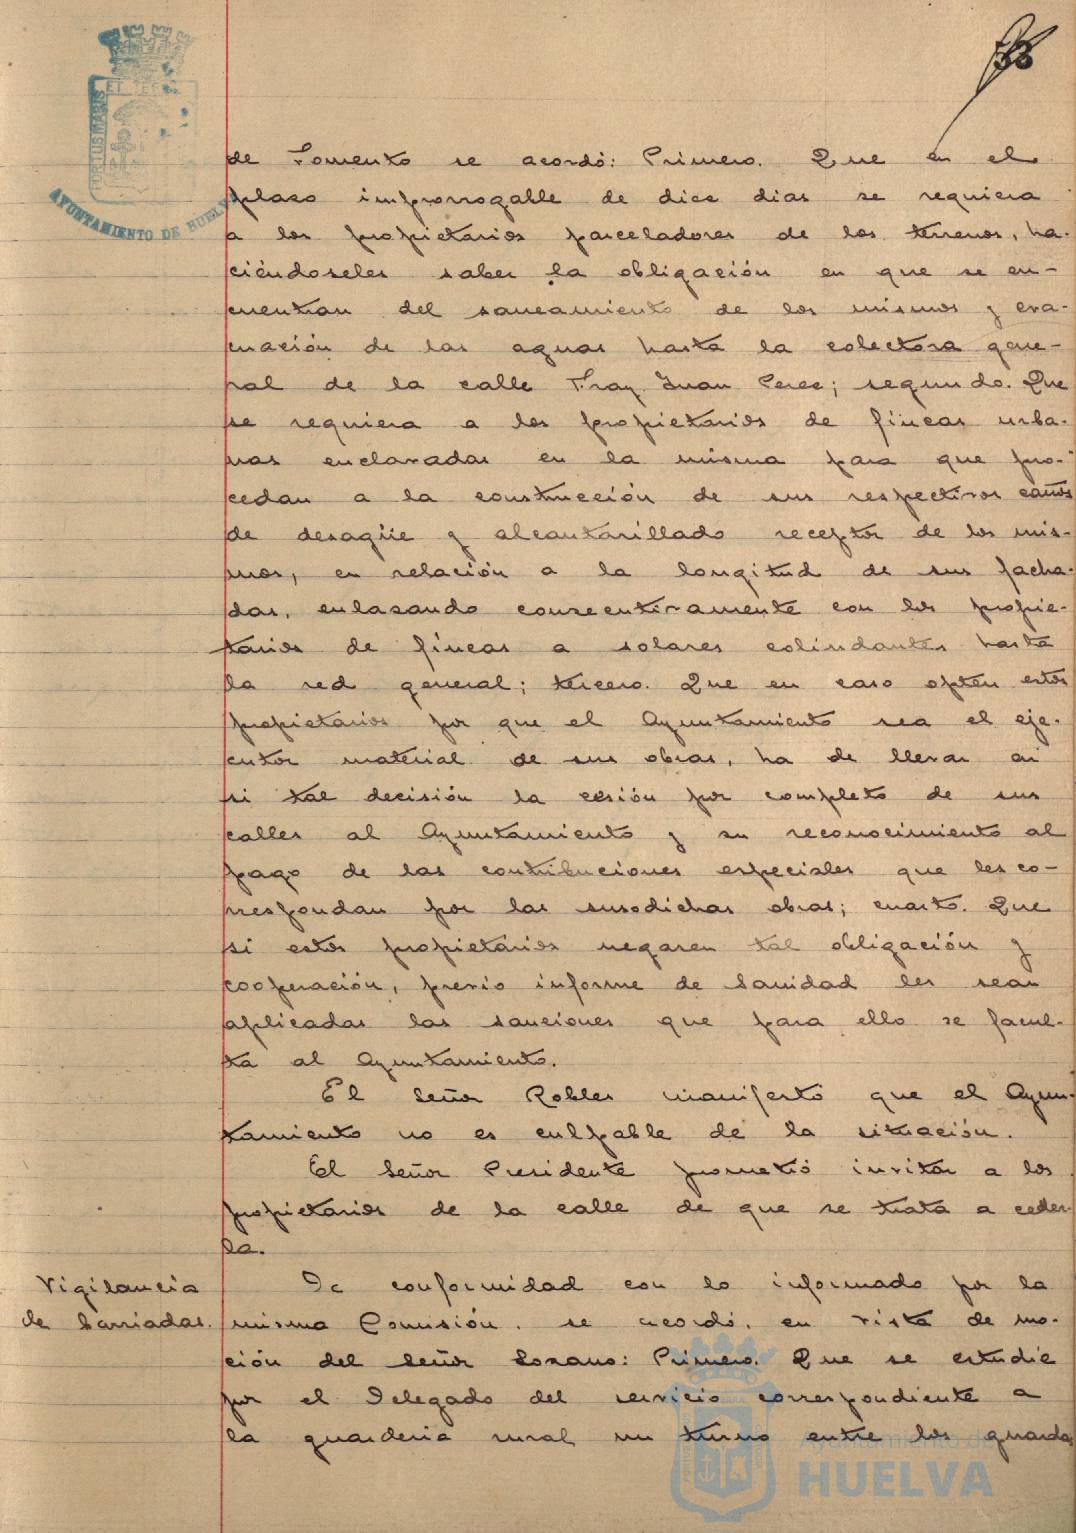 53
EL TERR
PORTUS MARIS
AYUNTAMIENTO DE HUELV
de Fomento se acordó: Primero. Que en el
plaso improrrogable de dies dias se requiera
a los propietarios parceladores de los terrenos, ha-
ciéndoseles saber la obligación en que se en-
cuentran del saneamiento de los mismos y eva-
cuación de las aguas hasta la colectora gene-
ral de la calle Fray Juan Peres; segundo. Que
se requiera a los propietarios de fincas urba-
nas enclavadas en la misma para que pro-
cedan a la construcción de sus respectivos caños
de desagüe y alcantarillado receptor de los mis-
mos, en relación a la longitud de sus facha-
das, enlasando consecutivamente con los propie-
tarios de fincas a solares colindantes hasta
la red general; tercero. Que en caso opten estos
propietarios por que el Ayuntamiento sea el eje-
cutor material de sus obras, ha de llevar en
si tal decisión la cesión por completo de sus
calles al Ayuntamiento y su reconocimiento al
pago de las contribuciones especiales que les co-
rrespondan por las susodichas obras; cuarto. Que
si estos propietarios negaren tal obligación y
cooperación, previo informe de Sanidad les sean
aplicadas las sanciones que para ello se facul-
ta al Ayuntamiento.
El Señor Robles manifestó que el Ayun-
tamiento no es culpable de la situación.
El Señor Presidente prometió invitar a los
propietarios de la calle de que se trata a ceder-
la.
Vigilancia
de barriadas.
De conformidad con lo informado por la
misma Comisión, se acordó, en vista de mo-
ción del Señor Lozano: Primero. Que se estudie
por el Delegado del servicio correspondiente a
la guarderia rural un turno entre los guardas
Ayuntamiento de
HUELVA